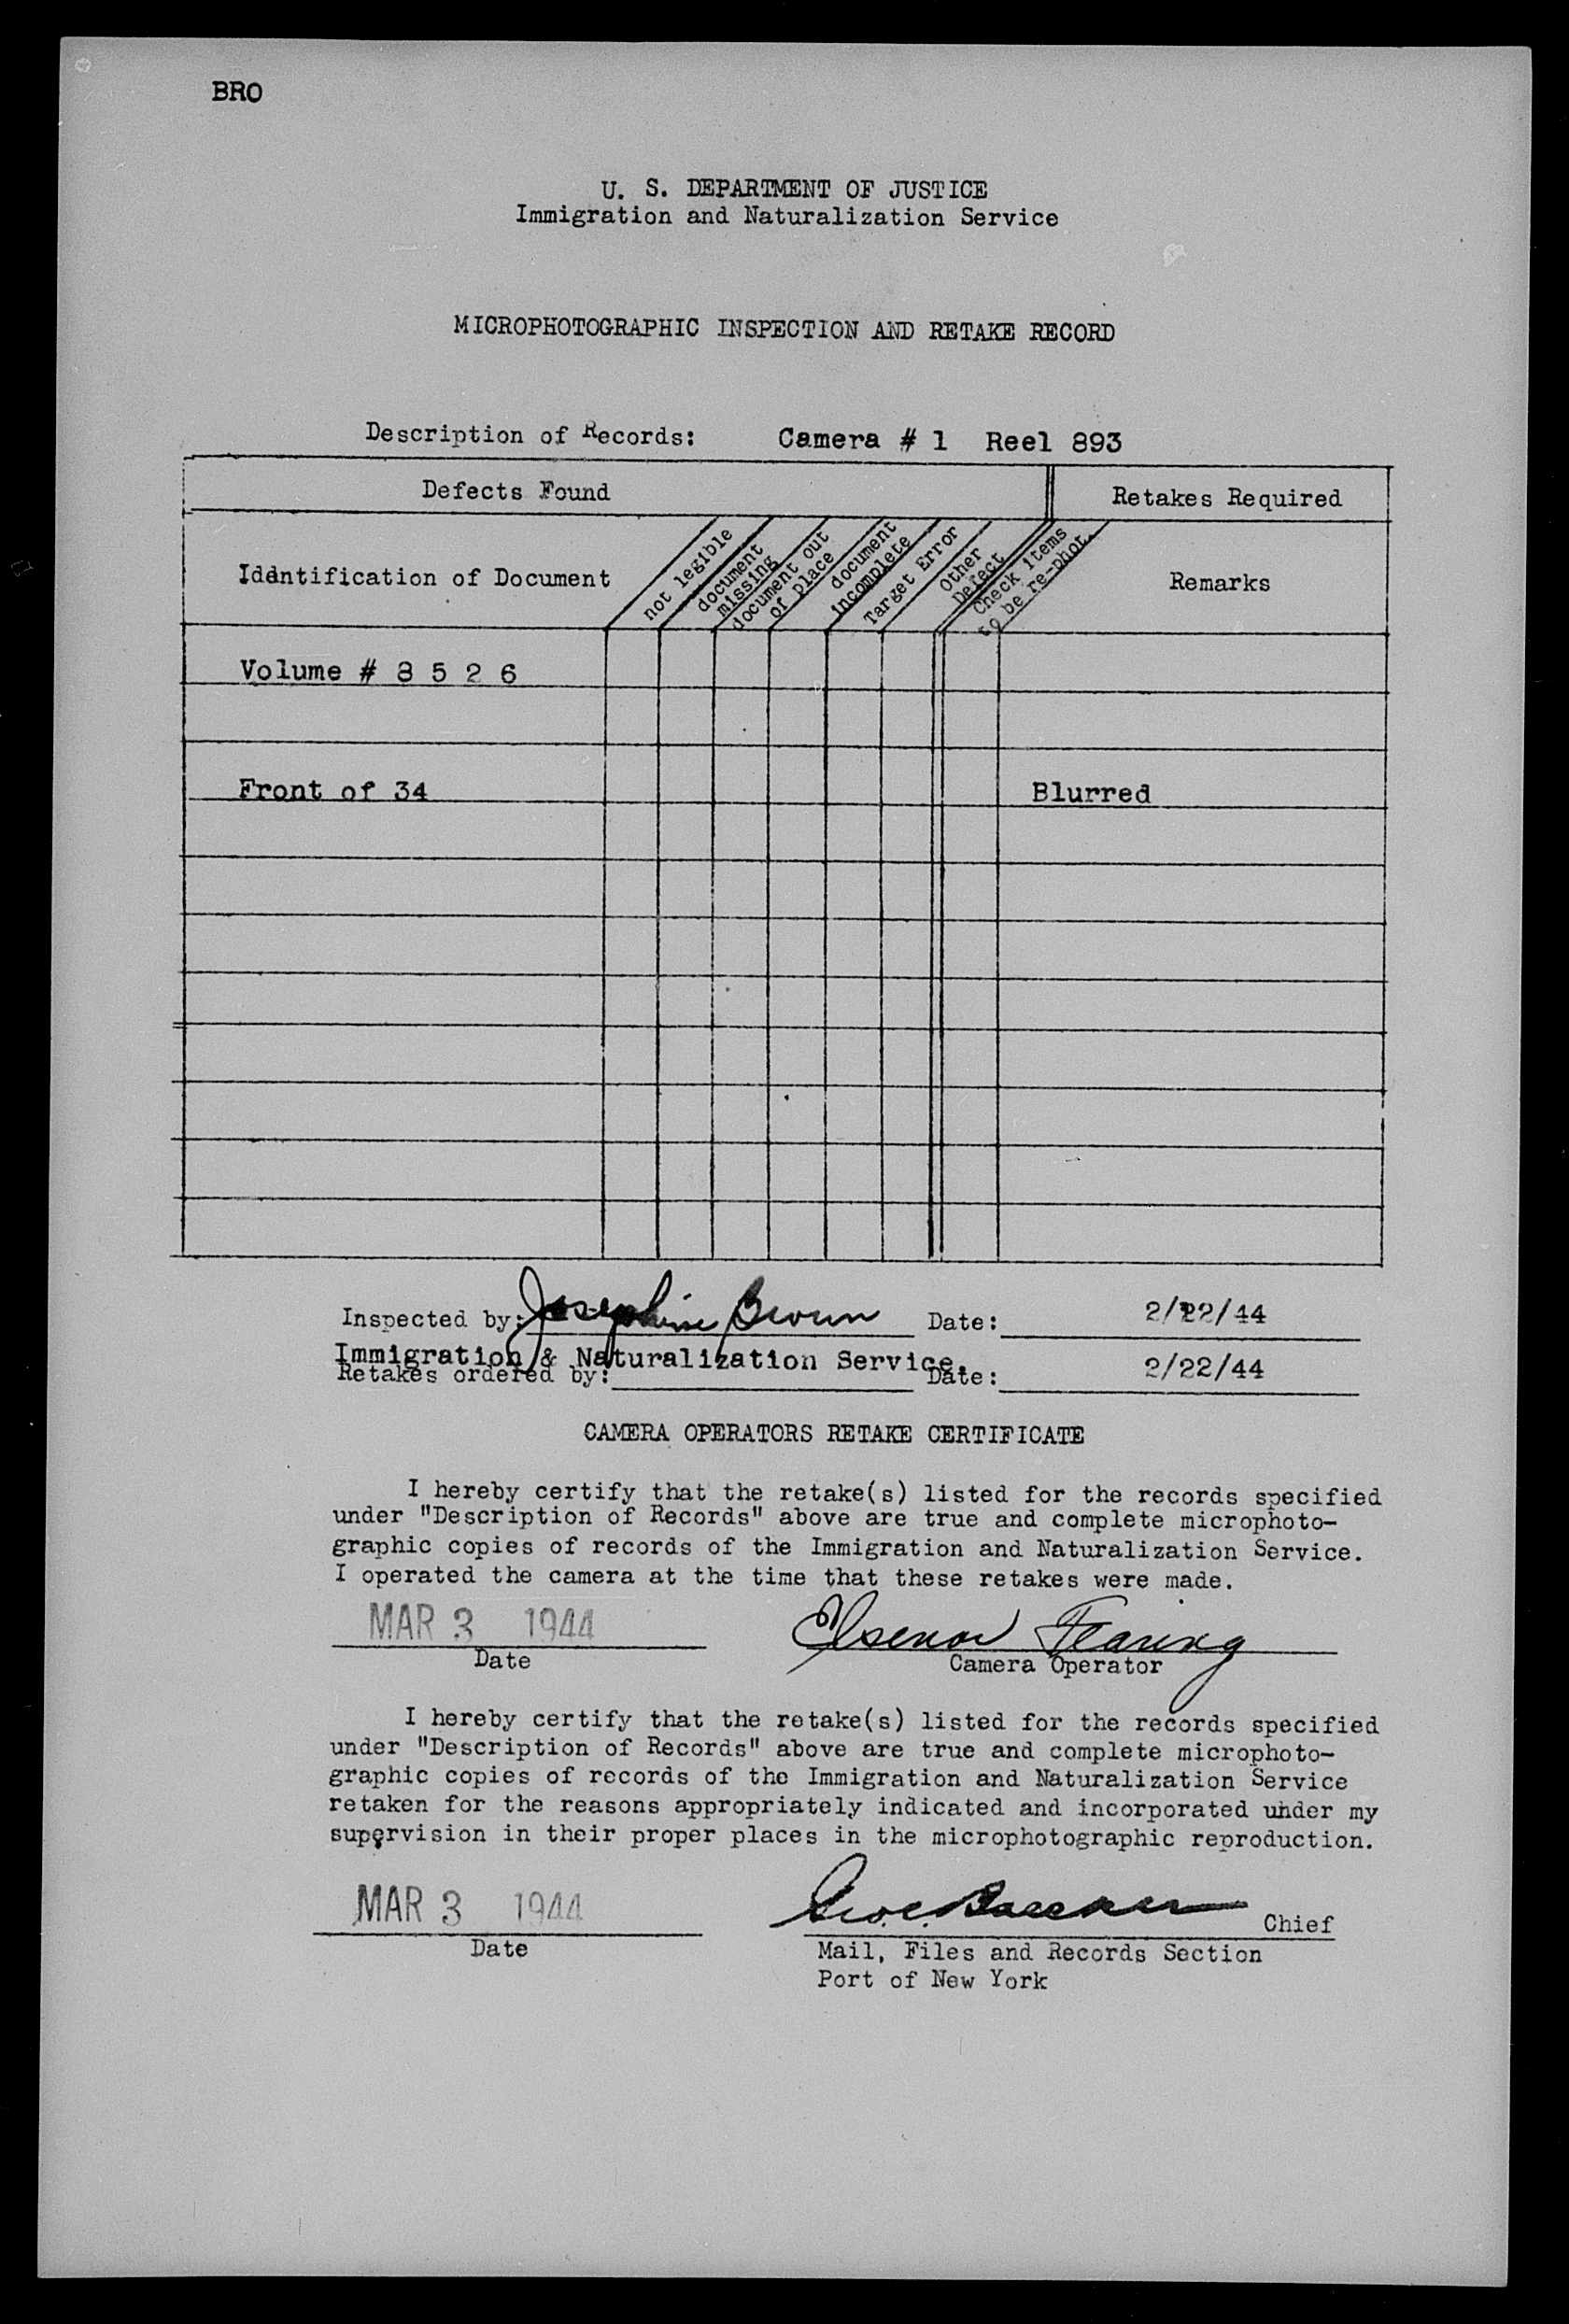 BRO
U. S. DEPARTMENT OF JUSTICE
Immigration and Naturalization Service
MICROPHOTOGRAPHIC INSPECTION AND RETAKE RECORD
Description of Records: Camera # 1 Reel 893
Defects Found
Retakes Required
Idäntification of Document
not legible
document missing
document out of place
document incomplete
Target Error
Other Defect
Check items to be re-phot.
Remarks
Volume # 8 5 2 6
Front of 34 Blurred
Inspected by: Josephine Brown Date: 2/22/44
Immigration & Naturalization Service.
Retakes ordered by: Date: 2/22/44
CAMERA OPERATORS RETAKE CERTIFICATE
I hereby certify that the retake(s) listed for the records specified
under "Description of Records" above are true and complete microphoto-
graphic copies of records of the Immigration and Naturalization Service.
I operated the camera at the time that these retakes were made.
MAR 3 1944
Date
Camera Operator
I hereby certify that the retake(s) listed for the records specified
under "Description of Records" above are true and complete microphoto-
graphic copies of records of the Immigration and Naturalization Service
retaken for the reasons appropriately indicated and incorporated under my
supervision in their proper places in the microphotographic reproduction.
MAR 3 1944
Chief
Date
Mail, Files and Records Section
Port of New York